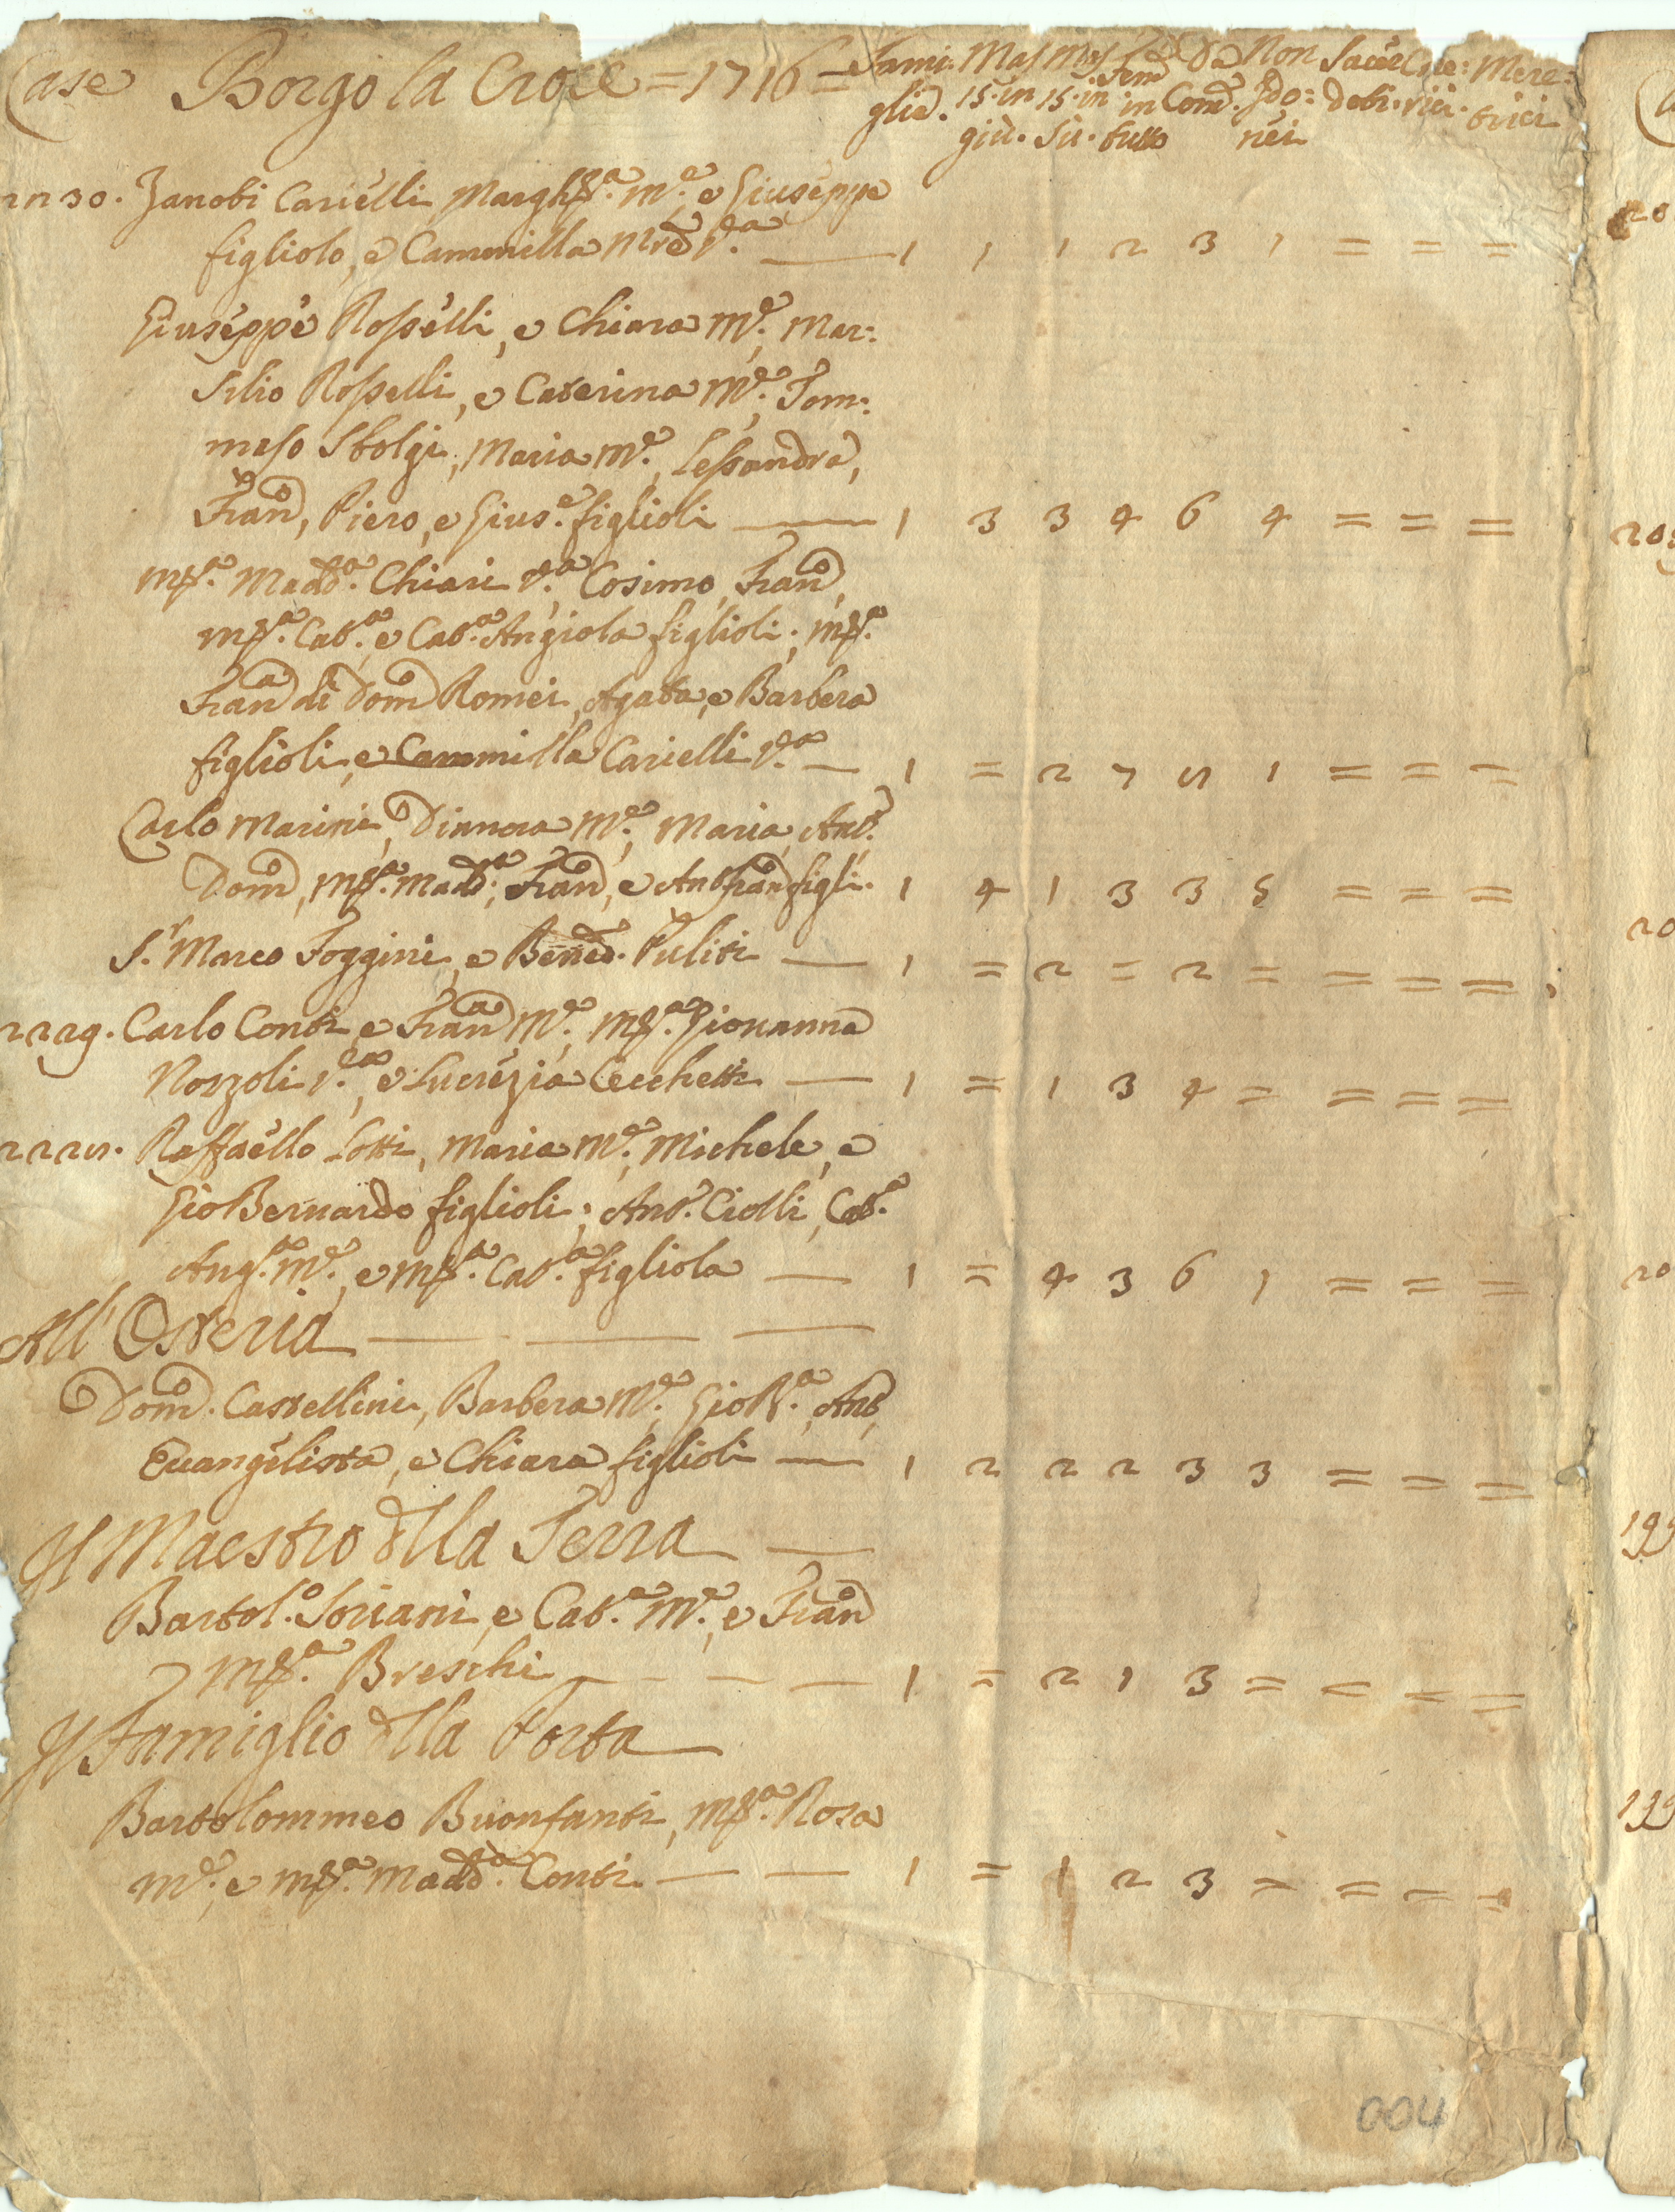 Case Borgo la Croce = 1716 = Fami: Mas Mas Fem Da Non Sacer Che: Mere:
glie. 15. in 15. in in Com. Ido: doti. rici. trici
giù. Sù. tutto nei
2230. Zanobi Carielli, Margh.ta M.e, e Giuseppe
figliolo, e Cammilla Mre V.a — 1 1 1 2 3 1 = = =
Giuseppe Rosselli, e Chiara M.e, Mar:
silio Rosselli, e Caterina M.e, Tom:
maso Stolgi, Maria M.e, Lessandra,
Fran.o, Piero, e Gius.e figlioli — 1 3 3 4 6 4 = = =
M.a Madd.a Chiari V.a, Cosimo, Fran.o,
M.a Cat.a, e Cat.a Angiola figlioli; M.a
Fran.a di Dom.o Romei, Agata, e Barbera
figlioli, e Cammilla Carielli V.a — 1 = 2 7 5 1 = = =
Carlo Marini, Dianora M.e, Maria, Ant.o
Dom.o, M.a Madd.a, Fran.o, e Ant.o Fran.o figli. 1 4 1 3 3 5 = = =
S.r Marco Foggini, e Bened. Puliti — 1 = 2 = 2 = = = =
2229. Carlo Conti, e Fran.a M.e, M.a Giovanna
Nozzoli V.a, e Lucrezia Cecchetti — 1 = 1 3 4 = = = =
2225. Raffaello Lotti, Maria M.e, Michele, e
Gio Bernardo figlioli; Ant.o Ciolli, Cat.a
Ang.a M.e, e M.a Cat.a figliola — 1 = 4 3 6 1 = = =
All' Osteria — — —
Dom.o Castellini, Barbera M.e, Gio B.a, Ant,
Evangelista, e Chiara figlioli — 1 2 2 2 3 3 = = =
Il Maestro della Terra —
Bartol.o Soriani, e Cat.a M.e, e Fran
M.a Breschi — — — 1 = 2 1 3 = = = =
Il Famiglio della Porta
Bartolommeo Buonfanti, M.a Rosa
M.e, e M.a Madd.a Conti — — 1 = 1 2 3 = = = =
004